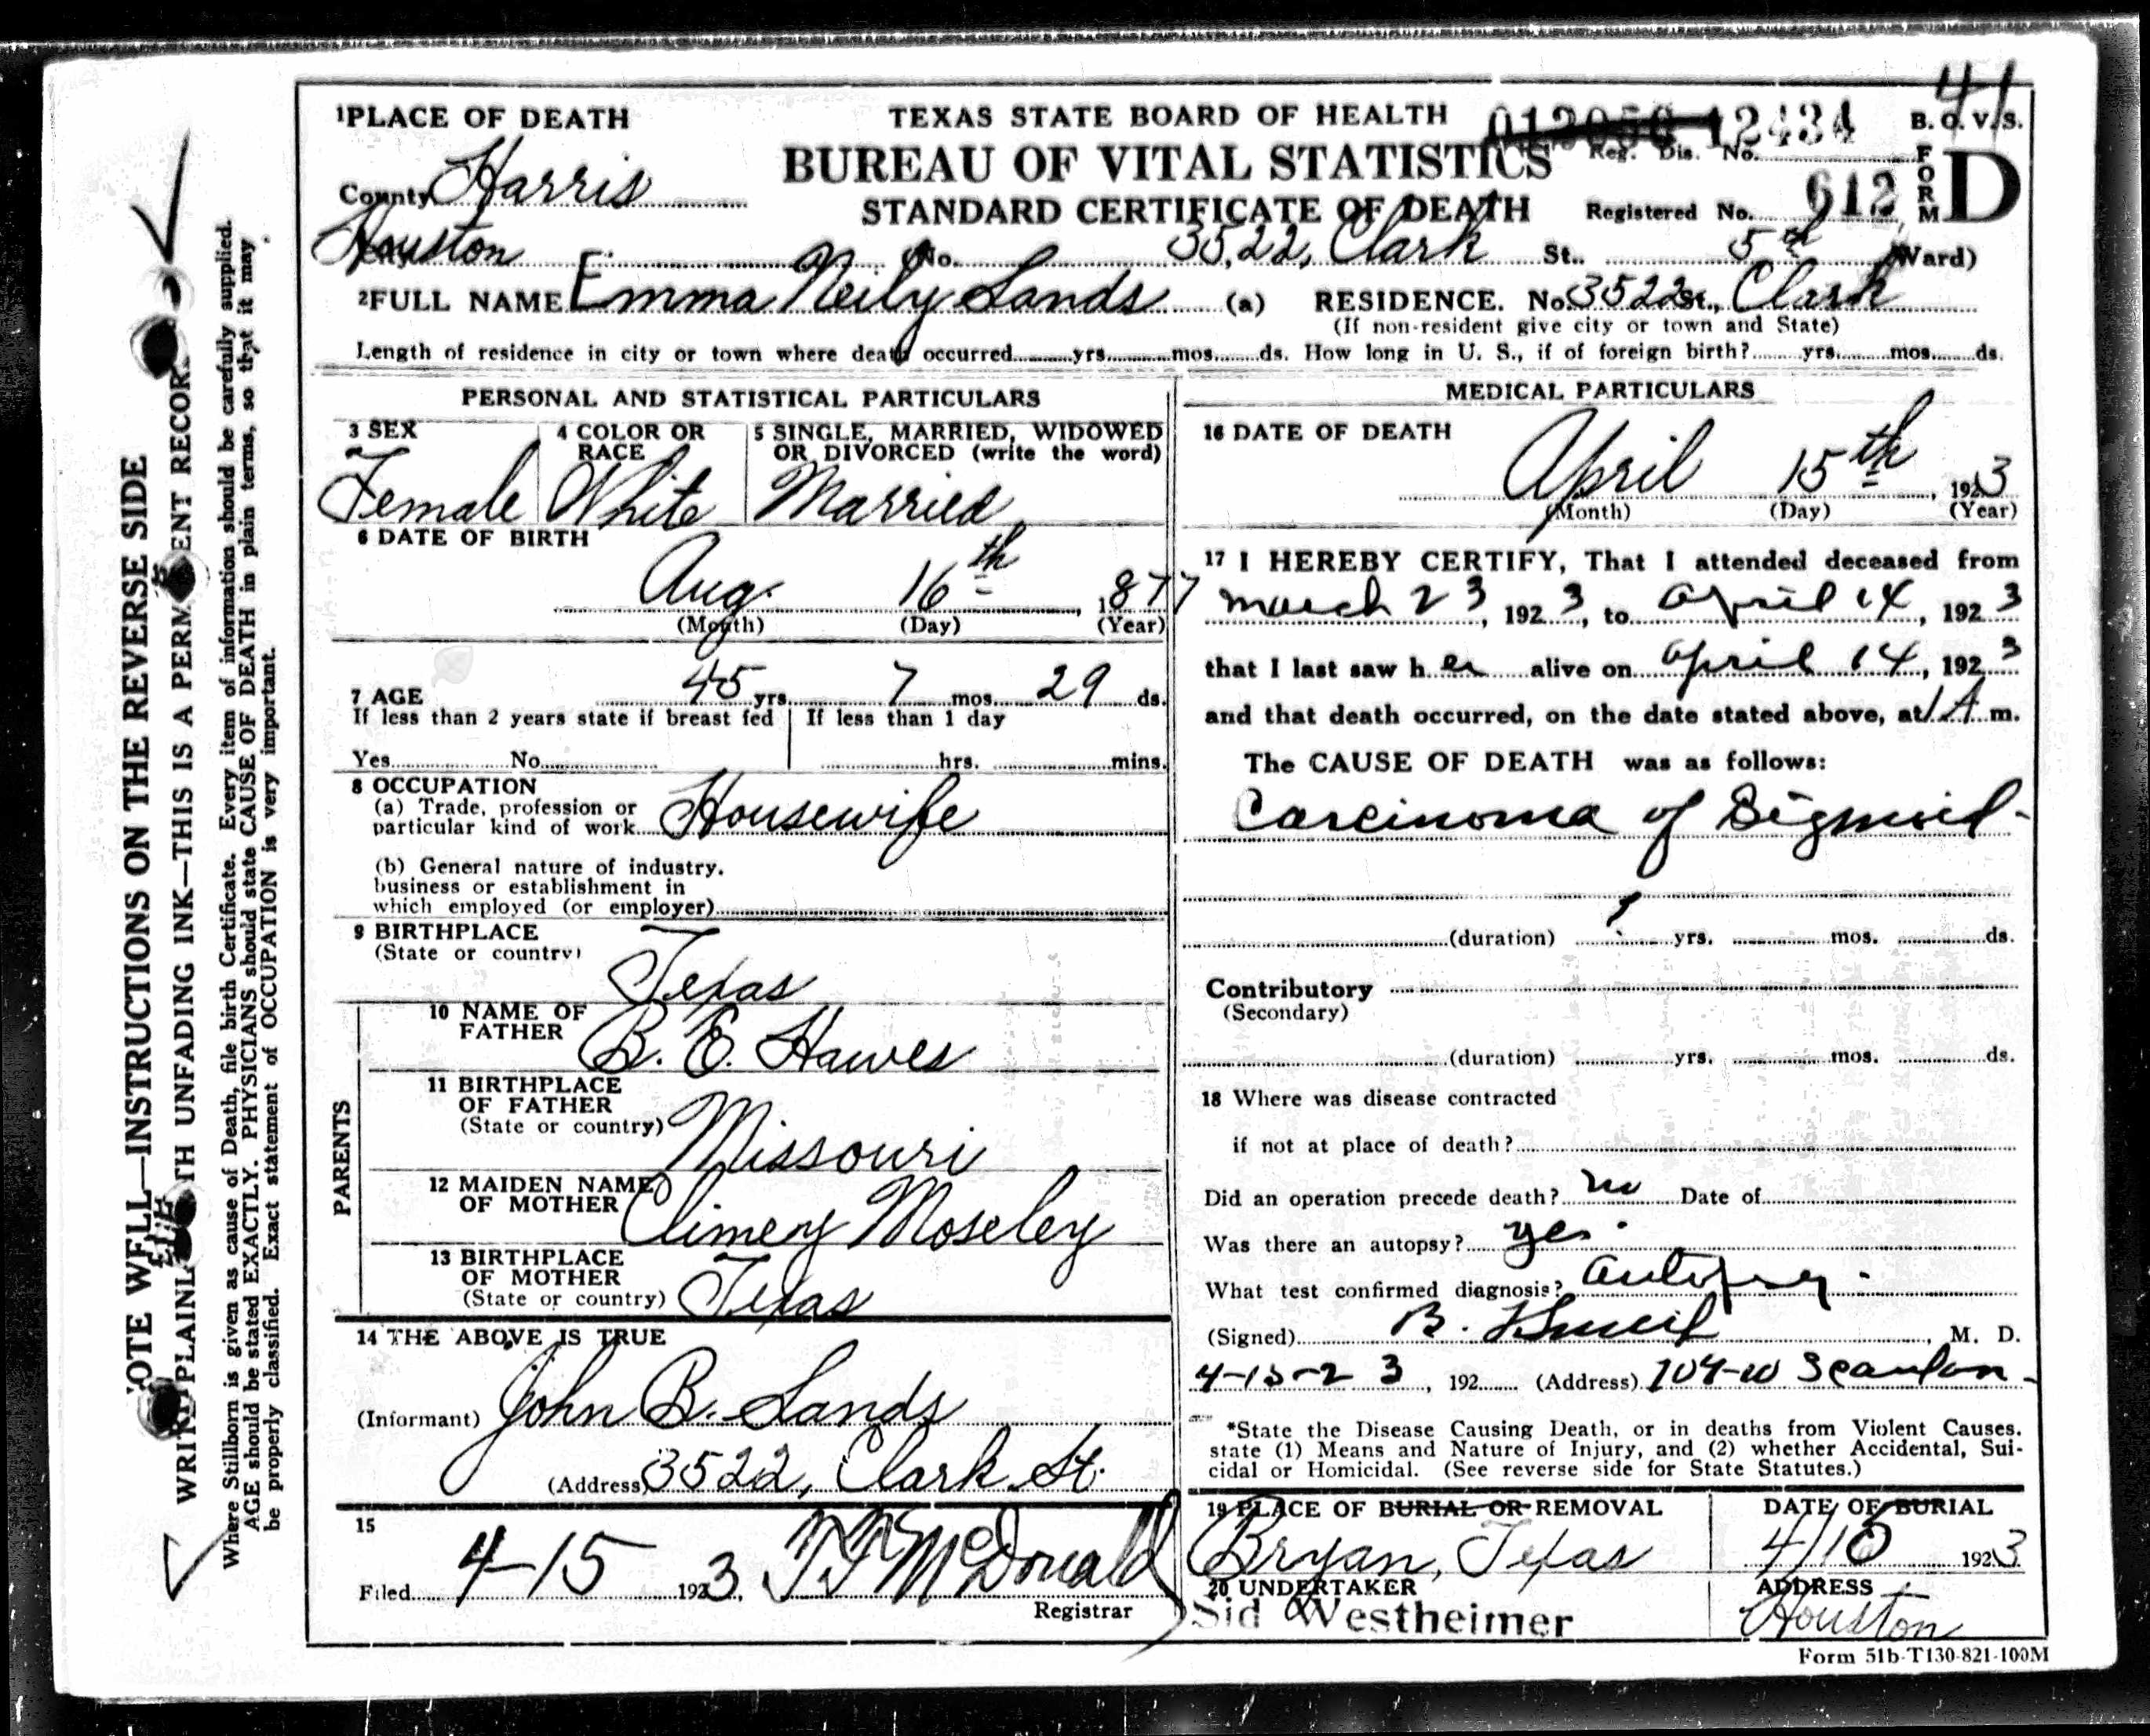 41
1 PLACE OF DEATH
TEXAS STATE BOARD OF HEALTH
012056 12434
B. O. V. S.
BUREAU OF VITAL STATISTICS
Reg. Dis. No.
FORM D
County Harris
STANDARD CERTIFICATE OF DEATH
Registered No. 612
Houston No. 3522, Clark St. 5th Ward)
2 FULL NAME Emma Neily Sands (a) RESIDENCE. No. 3522 St., Clark
(If non-resident give city or town and State)
Length of residence in city or town where death occurred yrs. mos. ds. How long in U. S., if of foreign birth? yrs. mos. ds.
PERSONAL AND STATISTICAL PARTICULARS
3 SEX
Female
4 COLOR OR RACE
White
5 SINGLE, MARRIED, WIDOWED
OR DIVORCED (write the word)
Married
6 DATE OF BIRTH
Aug. 16th, 1877
(Month) (Day) (Year)
7 AGE 45 yrs. 7 mos. 29 ds.
If less than 2 years state if breast fed
Yes No
If less than 1 day
hrs. mins.
8 OCCUPATION
(a) Trade, profession or
particular kind of work Housewife
(b) General nature of industry.
business or establishment in
which employed (or employer)
9 BIRTHPLACE
(State or country)
Texas
PARENTS
10 NAME OF
FATHER B. E. Hawes
11 BIRTHPLACE
OF FATHER
(State or country) Missouri
12 MAIDEN NAME
OF MOTHER Climey Moseley
13 BIRTHPLACE
OF MOTHER
(State or country) Texas
14 THE ABOVE IS TRUE
(Informant) John B. Sands
(Address) 3522, Clark St.
15
Filed 4-15 1923, T F McDonald
Registrar
MEDICAL PARTICULARS
16 DATE OF DEATH
April 15th, 1923
(Month) (Day) (Year)
17 I HEREBY CERTIFY, That I attended deceased from
March 23, 1923, to April 14, 1923
that I last saw her alive on April 14, 1923
and that death occurred, on the date stated above, at 1 A m.
The CAUSE OF DEATH was as follows:
Carcinoma of Sigmoid
(duration) yrs. mos. ds.
Contributory
(Secondary)
(duration) yrs. mos. ds.
18 Where was disease contracted
if not at place of death?
Did an operation precede death? no Date of
Was there an autopsy? yes.
What test confirmed diagnosis? autopsy.
(Signed) B. M. D.
4-15-23, 192 (Address) Scanlan
*State the Disease Causing Death, or in deaths from Violent Causes.
state (1) Means and Nature of Injury, and (2) whether Accidental, Sui-
cidal or Homicidal. (See reverse side for State Statutes.)
19 PLACE OF BURIAL OR REMOVAL
Bryan, Texas
DATE OF BURIAL
4/15 1923
20 UNDERTAKER
Sid Westheimer
ADDRESS
Houston
Form 51b-T130-821-100M
OTE WELL—INSTRUCTIONS ON THE REVERSE SIDE
WRITE PLAINLY WITH UNFADING INK—THIS IS A PERMANENT RECORD
Where Stillborn is given as cause of Death, file birth Certificate. Every item of information should be carefully supplied.
AGE should be stated EXACTLY. PHYSICIANS should state CAUSE OF DEATH in plain terms, so that it may
be properly classified. Exact statement of OCCUPATION is very important.